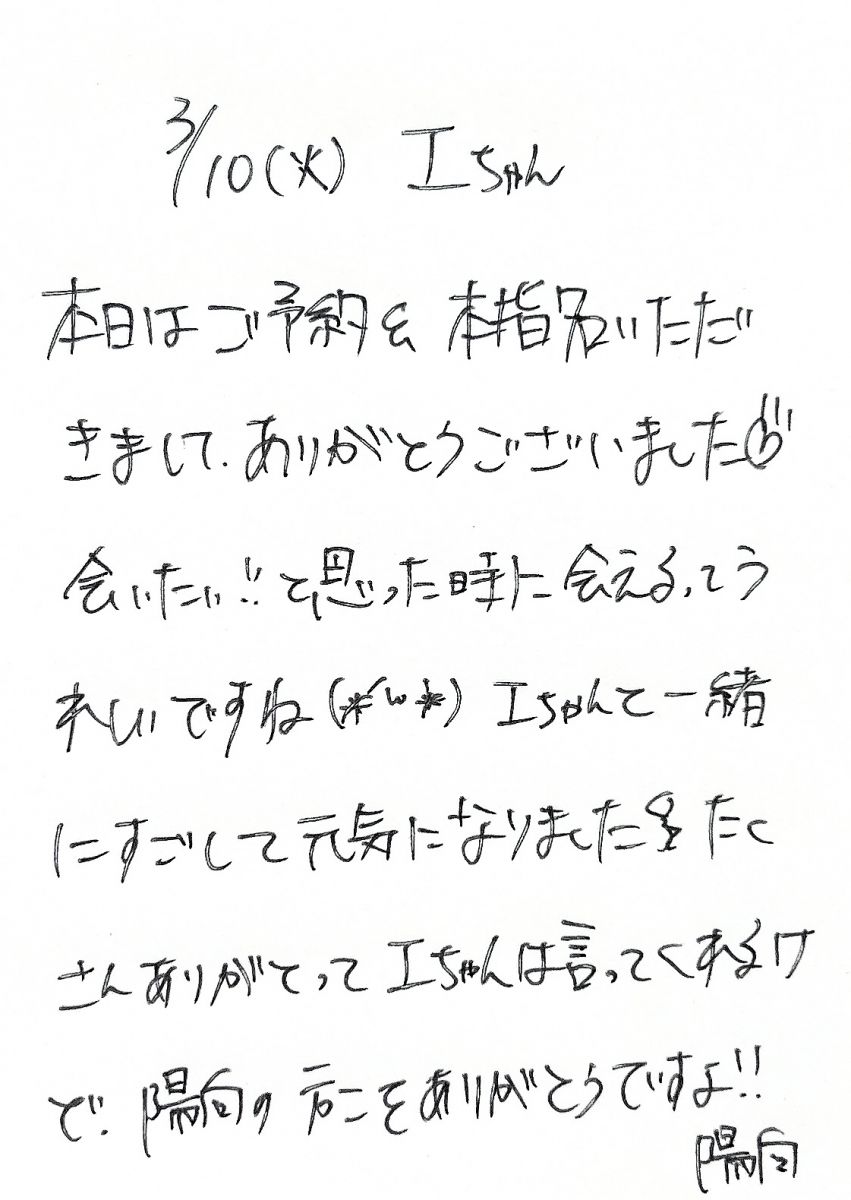 3/10(火) エちゃん
本日はご予約&本指名いただ
きまして、ありがとうございました
会いたい!!と思った時に会えるってう
れしいですね(*´ω*) エちゃんと一緒
にすごして元気になりました たく
さんありがとって エちゃんは言ってくれるけ
ど、陽向の方こそありがとうですよ!!
陽向